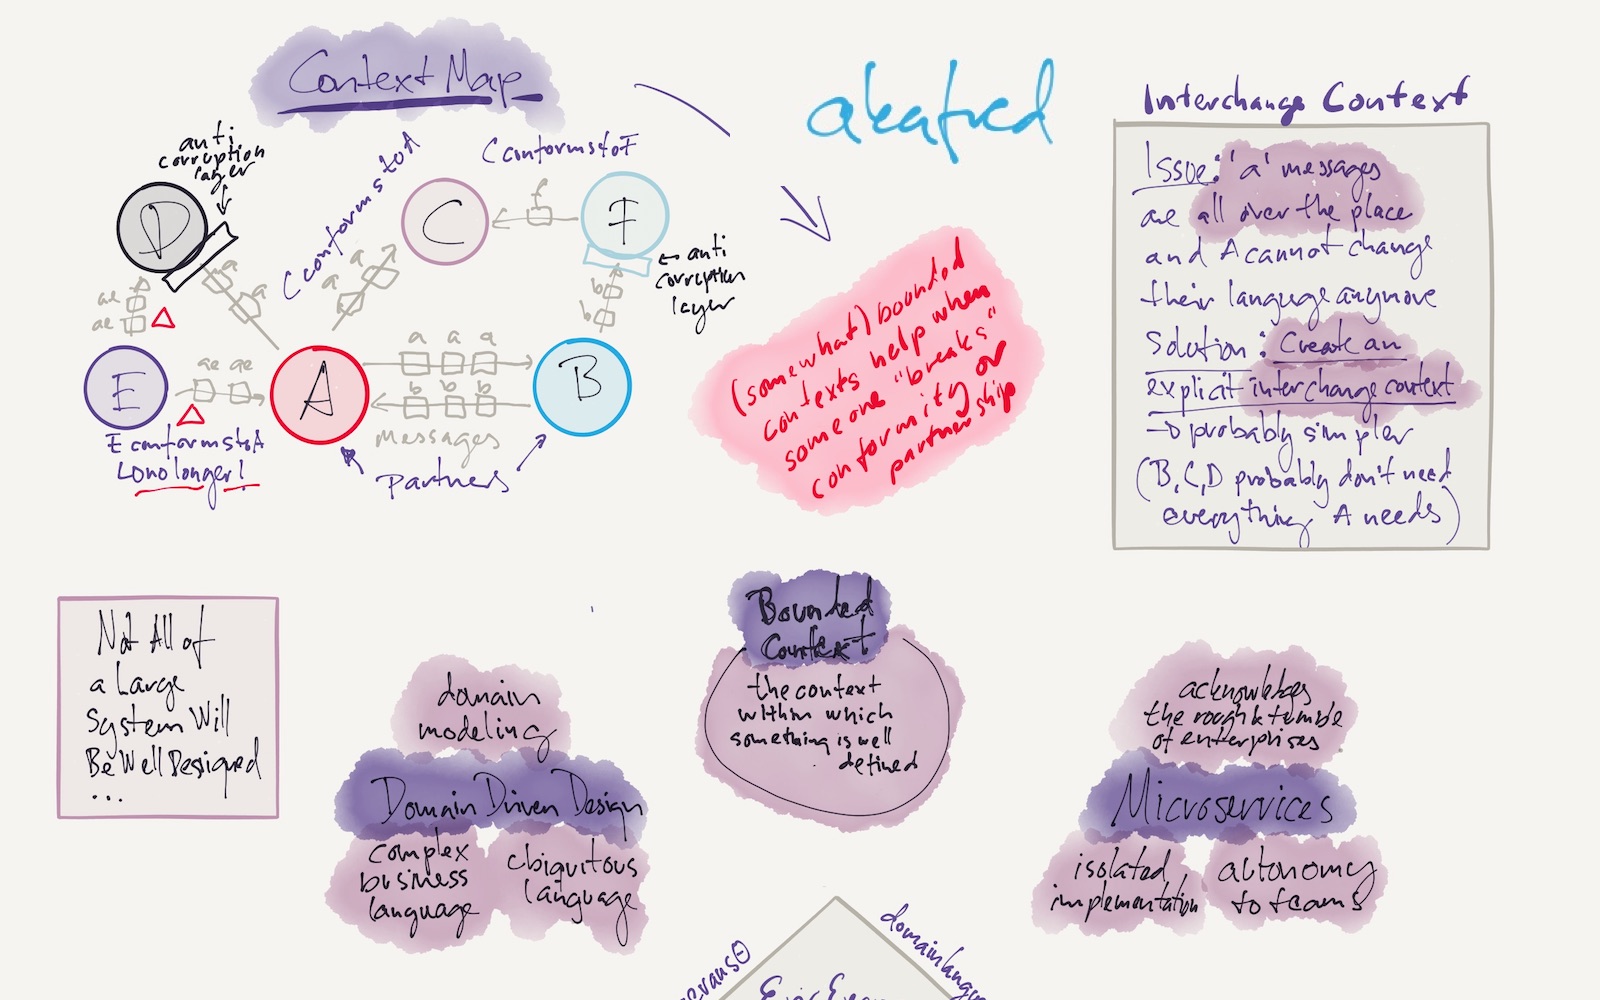 Context Map
anti
corruption
layer
D
C conforms to A
C conforms to F
C
f
F
← anti
corruption
layer
a
a
a
a
ae
ae
b
b
E
ae ae
A
a a a
b b b
messages
B
E conforms to A
↳ no longer!
partners
akafred
(somewhat) bounded
contexts help when
someone "breaks"
conformity or
partnership
Interchange Context
Issue: 'a' messages
are all over the place
and A cannot change
their language anymore
Solution: Create an
explicit interchange context
→ probably simpler
(B, C, D probably don't need
everything A needs)
Not All of
a Large
System Will
Be Well Designed
...
domain
modeling
Domain Driven Design
complex
business
language
ubiquitous
language
Bounded
Context
the context
within which
something is well
defined
acknowledges
the rough & tumble
of enterprises
Microservices
isolated
implementation
autonomy
to teams